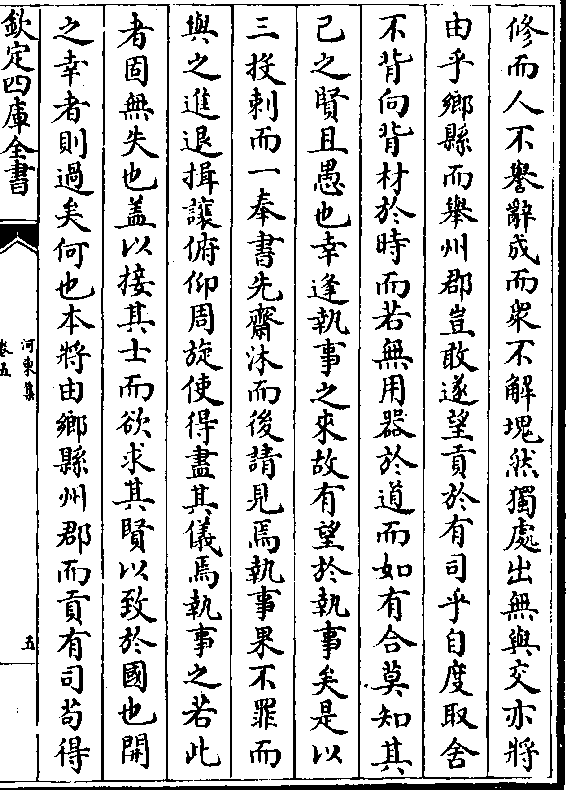 修而人不譽辭成而衆不解塊然獨處出無與交亦將
由乎鄉縣而舉州郡豈敢遂望貢於有司乎自度取舍
不背向背材於時而若無用器於道而如有合莫知其
己之賢且愚也幸逢執事之來故有望於執事矣是以
三投刺而一奉書先齋沐而後請見焉執事果不罪而
與之進退揖讓俯仰周旋使得盡其儀焉執事之若此
者固無失也盖以接其士而欲求其賢以致於國也開
之幸者則過矣何也本將由鄉縣州郡而貢有司苟得
欽定四庫全書
河東集
卷五
五